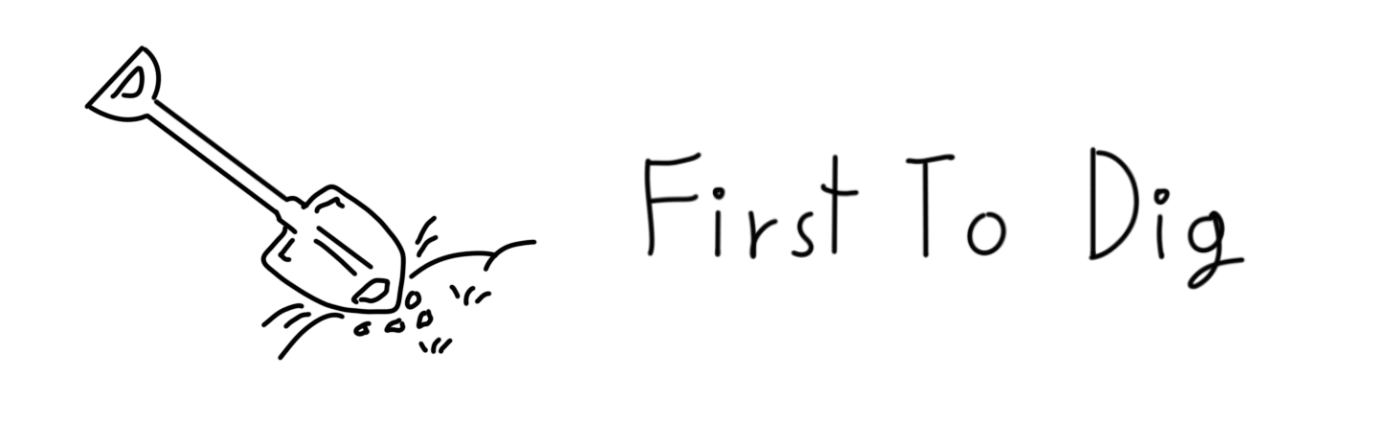 First To Dig